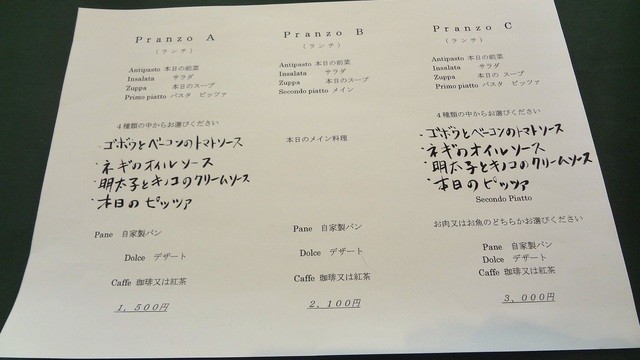 Pranzo A
(ランチ)
Antipasto 本日の前菜
Insalata サラダ
Zuppa 本日のスープ
Primo piatto パスタ ピッツァ
4種類の中からお選びください
・ゴボウとベーコンのトマトソース
・ネギのオイルソース
・明太子とキノコのクリームソース
・本日のピッツァ
Pane 自家製パン
Dolce デザート
Caffe 珈琲又は紅茶
1,500円
Pranzo B
(ランチ)
Antipasto 本日の前菜
Insalata サラダ
Zuppa 本日のスープ
Secondo piatto メイン
本日のメイン料理
Pane 自家製パン
Dolce デザート
Caffe 珈琲又は紅茶
2,100円
Pranzo C
(ランチ)
Antipasto 本日の前菜
Insalata サラダ
Zuppa 本日の スープ
Primo piatto パスタ ピッツァ
4種類の中からお選びください
・ゴボウとベーコンのトマトソース
・ネギのオイルソース
・明太子とキノコのクリームソース
・本日のピッツァ
Secondo Piatto
お肉又はお魚のどちらかお選びください
Pane 自家製パン
Dolce デザート
Caffe 珈琲又は紅茶
3,000円